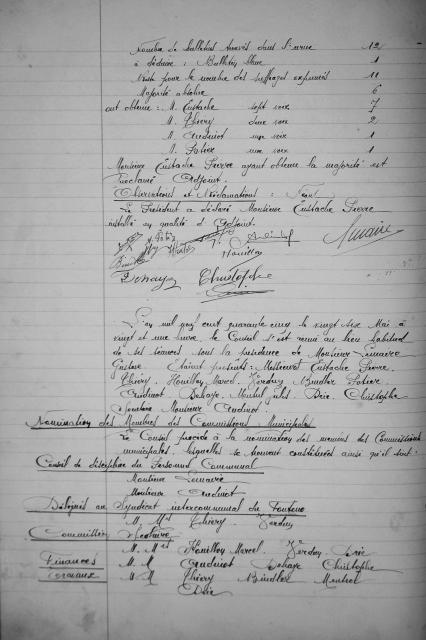 Nombre de bulletins trouvés dans l'urne 12
à déduire : Bulletin blanc 1
Reste pour le nombre des suffrages exprimés 11
Majorité absolue 6
ont obtenu : M. Eustache sept voix 7
M. Thiery deux voix 2
M. Andinot une voix 1
M. une voix 1
Monsieur Eustache Pierre ayant obtenu la majorité est
Proclamé Adjoint.
Observations et Réclamations : Néant
Le Président a déclaré Monsieur Eustache Pierre
installé en qualité d'Adjoint.
Houillon
Dehaye Christophe
L'an mil neuf cent quarante cinq le vingt six Mai à
vingt et une heure, le Conseil s'est réuni au lieu habituel
de ses séances sous la présidence de Monsieur
Gustave. Etaient présents : Messieurs Eustache Pierre,
Thiery, Houillon Marcel, Verdun, Bindler
Andinot, Dehaye, Jules, Brie, Christophe
Secrétaire Monsieur Andinot.
Nomination des Membres des Commissions Municipales
Le Conseil procède à la nomination des membres des Commissions
municipales, lesquelles se trouvent constituées ainsi qu'il suit :
Conseil de discipline du Personnel Communal
Monsieur
Monsieur Andinot
Délégués au Syndicat intercommunal du
M. Mrs Thiery. Verdun
Commission Scolaire
M. Mrs Houillon Marcel Verdun Brie
Finances M. M Andinot Dehaye Christophe
Travaux M. M Thiery Bindler
Brie